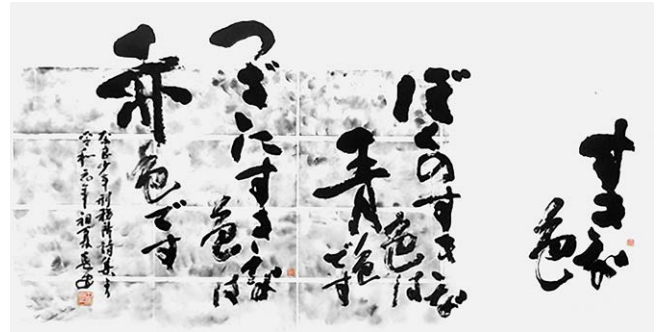 すきな
色
ぼくのすきな
色は
青色です
つぎにすきな
色は
赤色です
奈良少年刑務所詩集より
令和元年